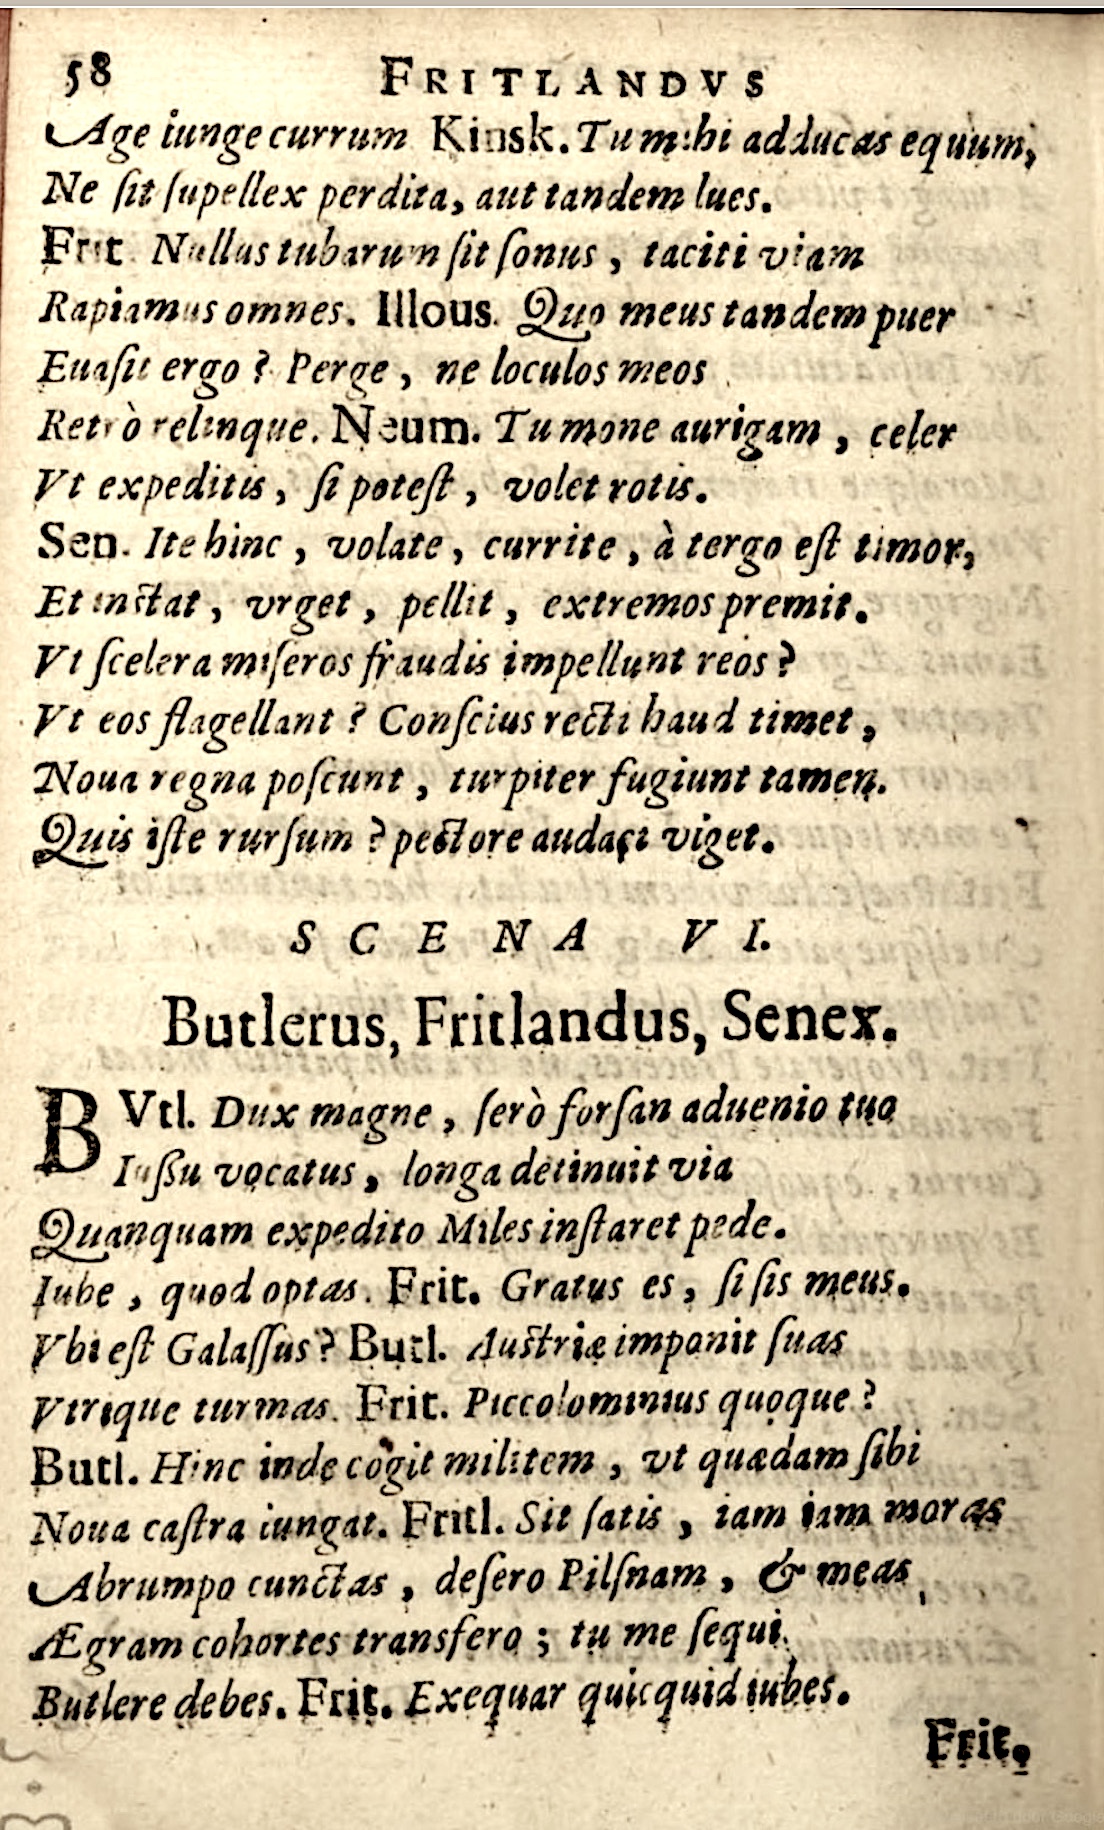 58 FRITLANDVS
Age iunge currum Kinsk. Tu mihi adducas equum,
Ne ſit ſupellex perdita, aut tandem lues.
Frit. Nullus tubarum ſit ſonus, taciti viam
Rapiamus omnes. Illous. Quo meus tandem puer
Euaſit ergo? Perge, ne loculos meos
Retrò relinque. Neum. Tu mone aurigam, celer
Vt expeditis, ſi poteſt, volet rotis.
Sen. Ite hinc, volate, currite, à tergo eſt timor,
Et inctat, vrget, pellit, extremos premit.
Vt ſcelera miſeros fraudis impellunt reos?
Vt eos flagellant? Conſcius recti haud timet,
Noua regna poſcunt, turpiter fugiunt tamen.
Quis iſte rurſum? pectore audaci viget.
SCENA VI.
Butlerus, Fritlandus, Senex.
BVtl. Dux magne, ſerò forſan aduenio tuo
Iuſſu vocatus, longa detinuit via
Quanquam expedito Miles inſtaret pede.
Iube, quod optas. Frit. Gratus es, ſi ſis meus.
Vbi eſt Galaſſus? Butl. Auſtriæ imponit ſuas
Vtrique turmas. Frit. Piccolominius quoque?
Butl. Hinc inde cogit militem, vt quædam ſibi
Noua caſtra iungat. Fritl. Sit ſatis, iam iam moras
Abrumpo cunctas, deſero Pilſnam, & meas
Ægram cohortes transfero; tu me ſequi
Butlere debes. Frit. Exequar quicquid iubes.
Frit.